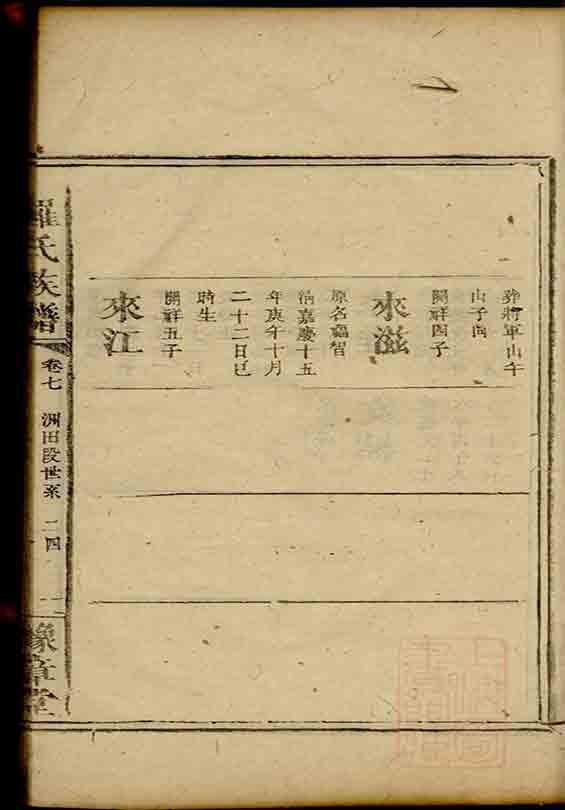 葬將軍山午
山子向
開祥四子
來滋
原名福智
清嘉慶十五
年庚午十月
二十二日巳
時生
開祥五子
來江
羅氏族譜
卷七
洲田段世系
二四
豫章堂